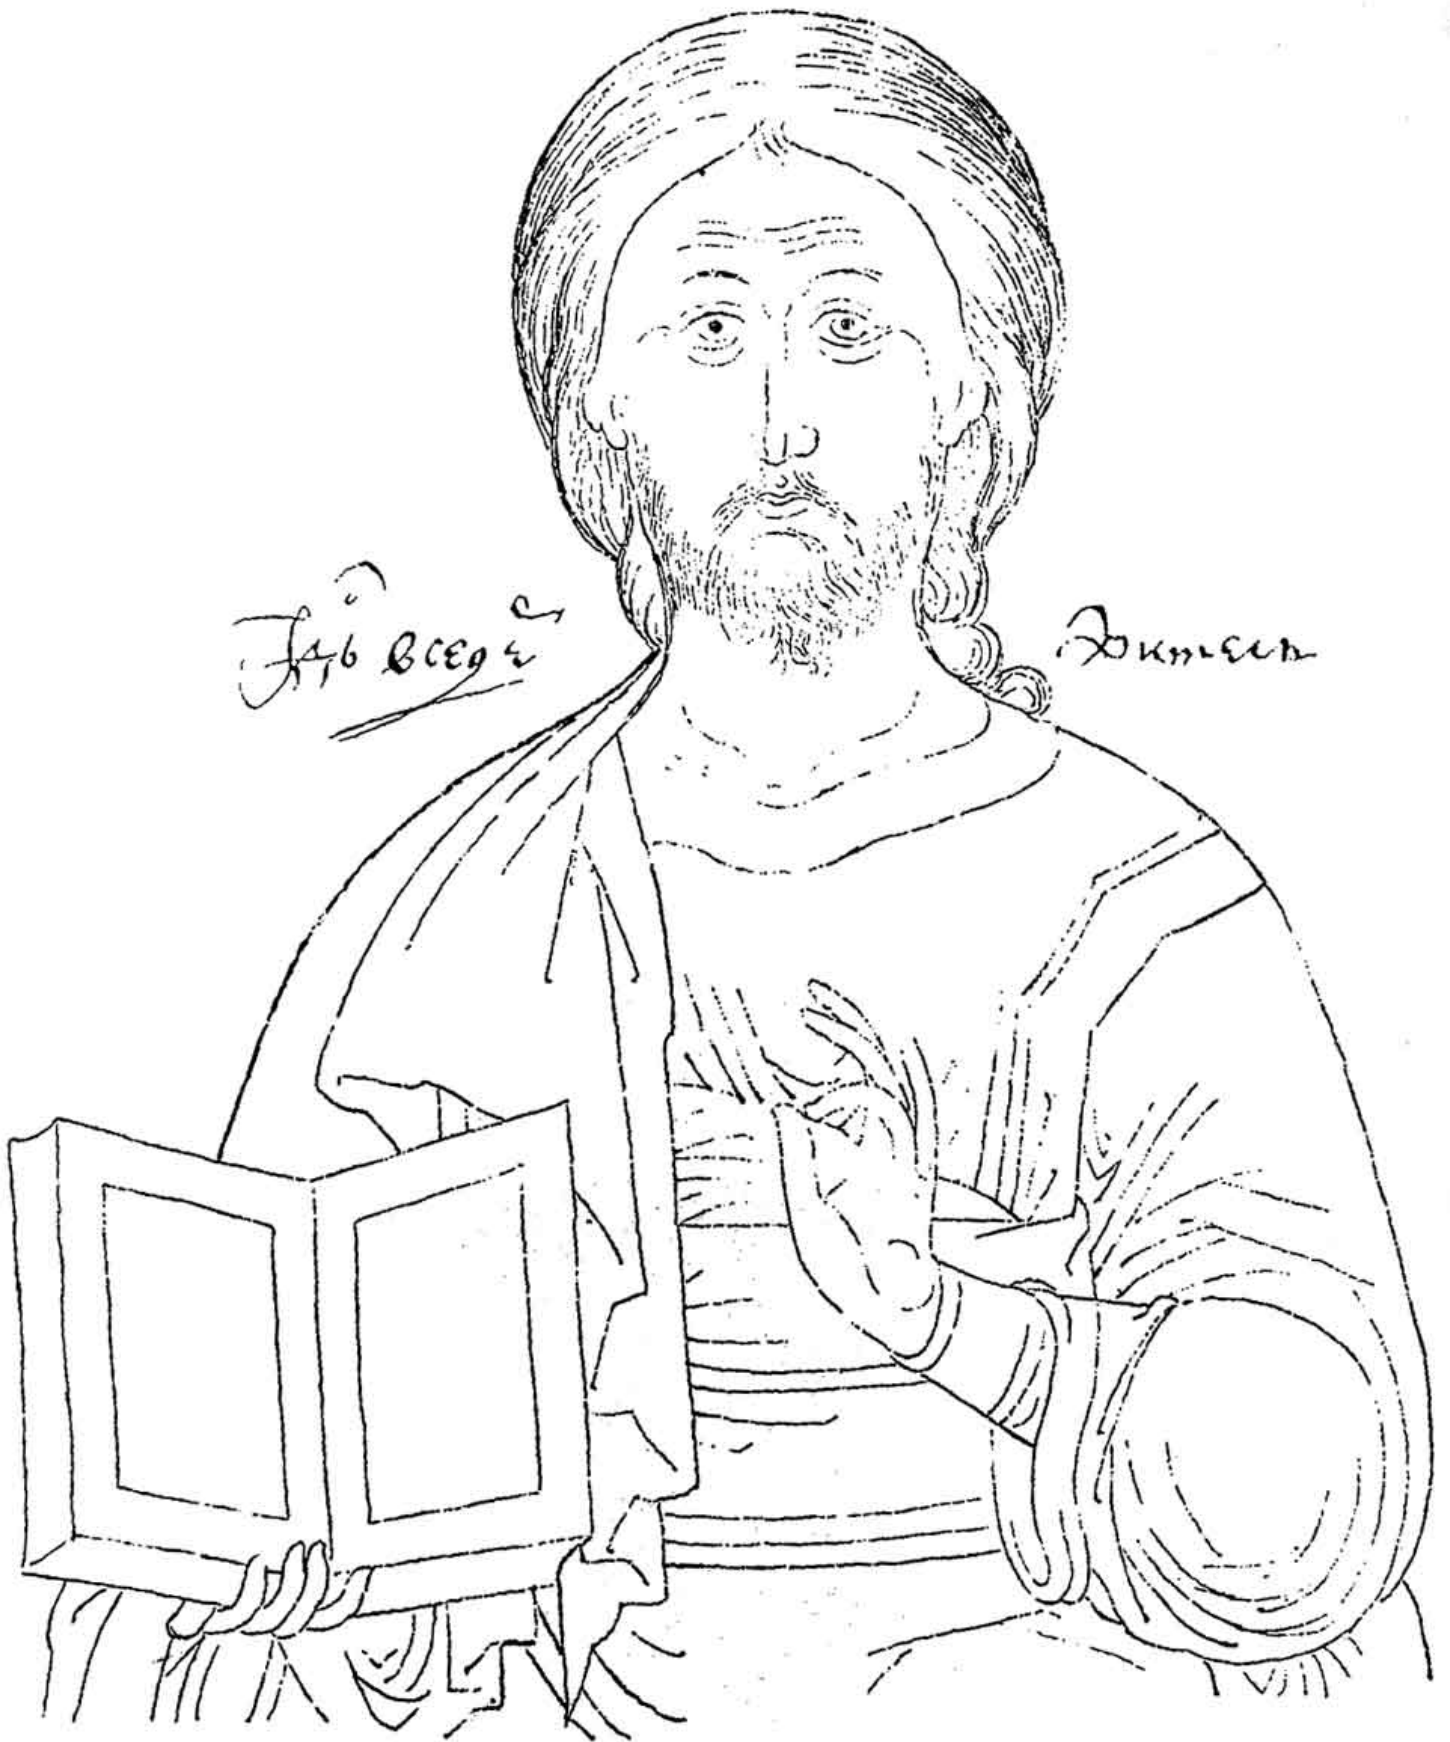 Гдⷭ҇ь вседе ржитель